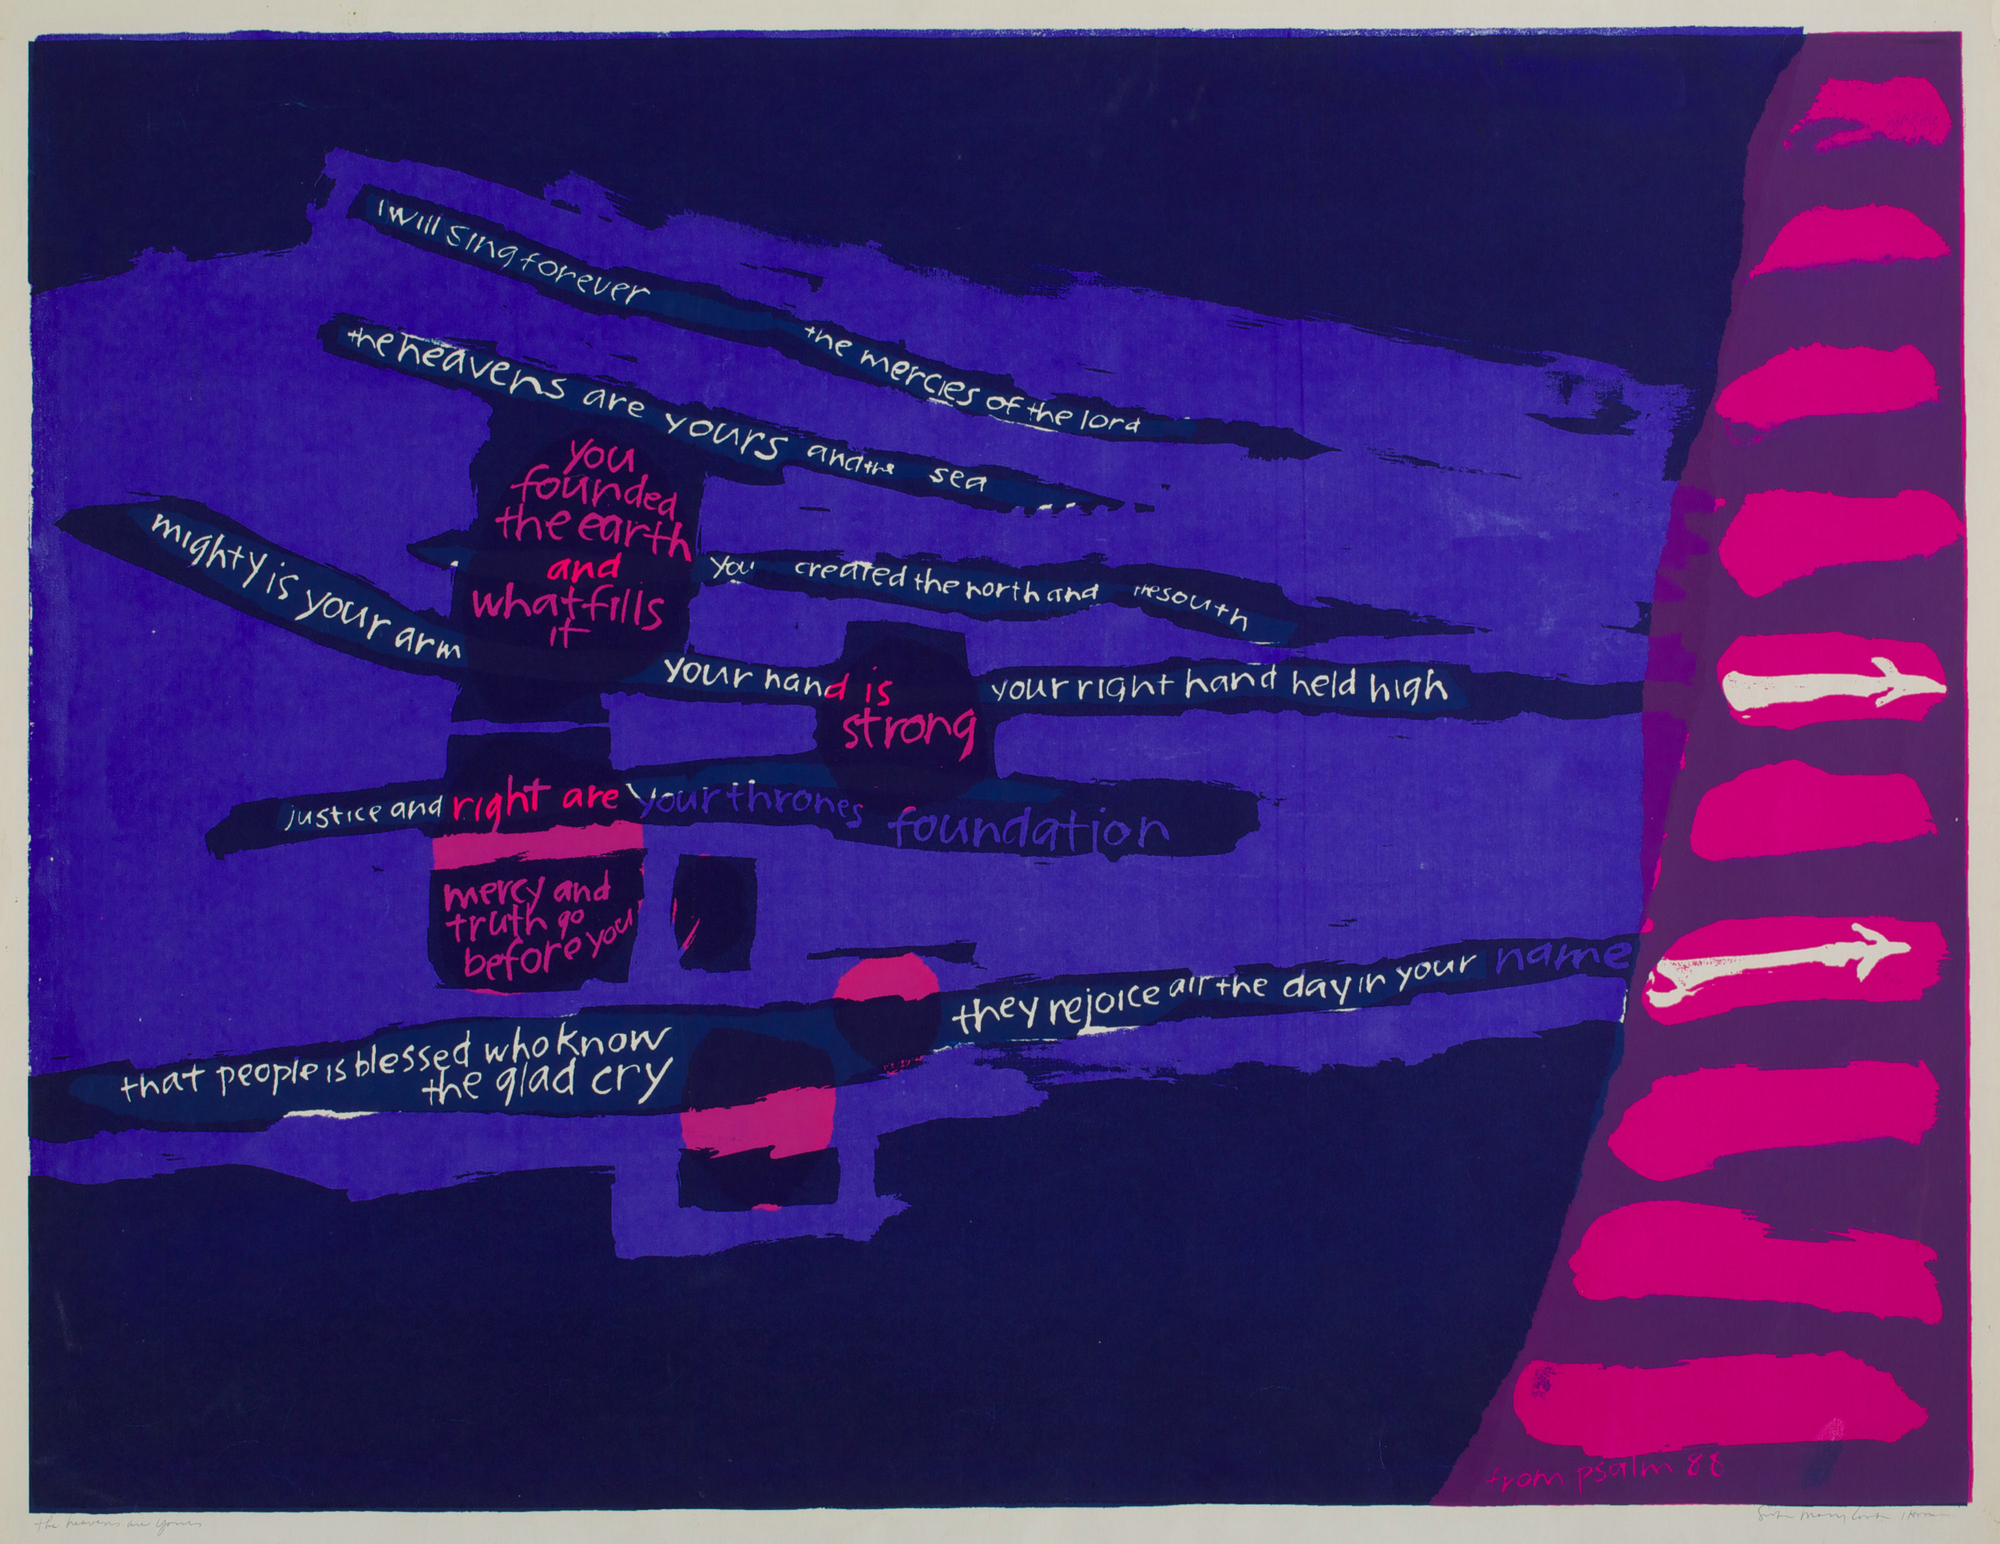 I will sing forever the mercies of the lord
the heavens are yours and the sea
you
founded
the earth
and
what fills
it
you created the north and the south
mighty is your arm
your hand is
strong
your right hand held high
justice and right are your thrones foundation
mercy and
truth go
before you
that people is blessed who know
the glad cry
they rejoice all the day in your name
from psalm 88
the heavens are yours
Sister Mary Corita